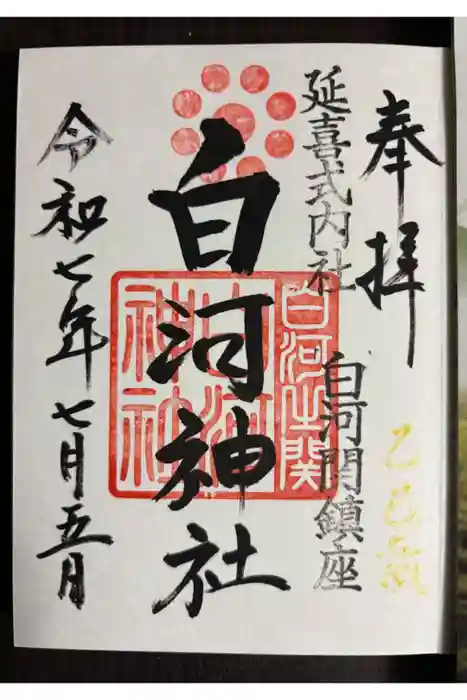 奉拝
乙巳
延喜式内社
白河関鎮座
白河神社
白河之関
白河神社
令和七年七月五月